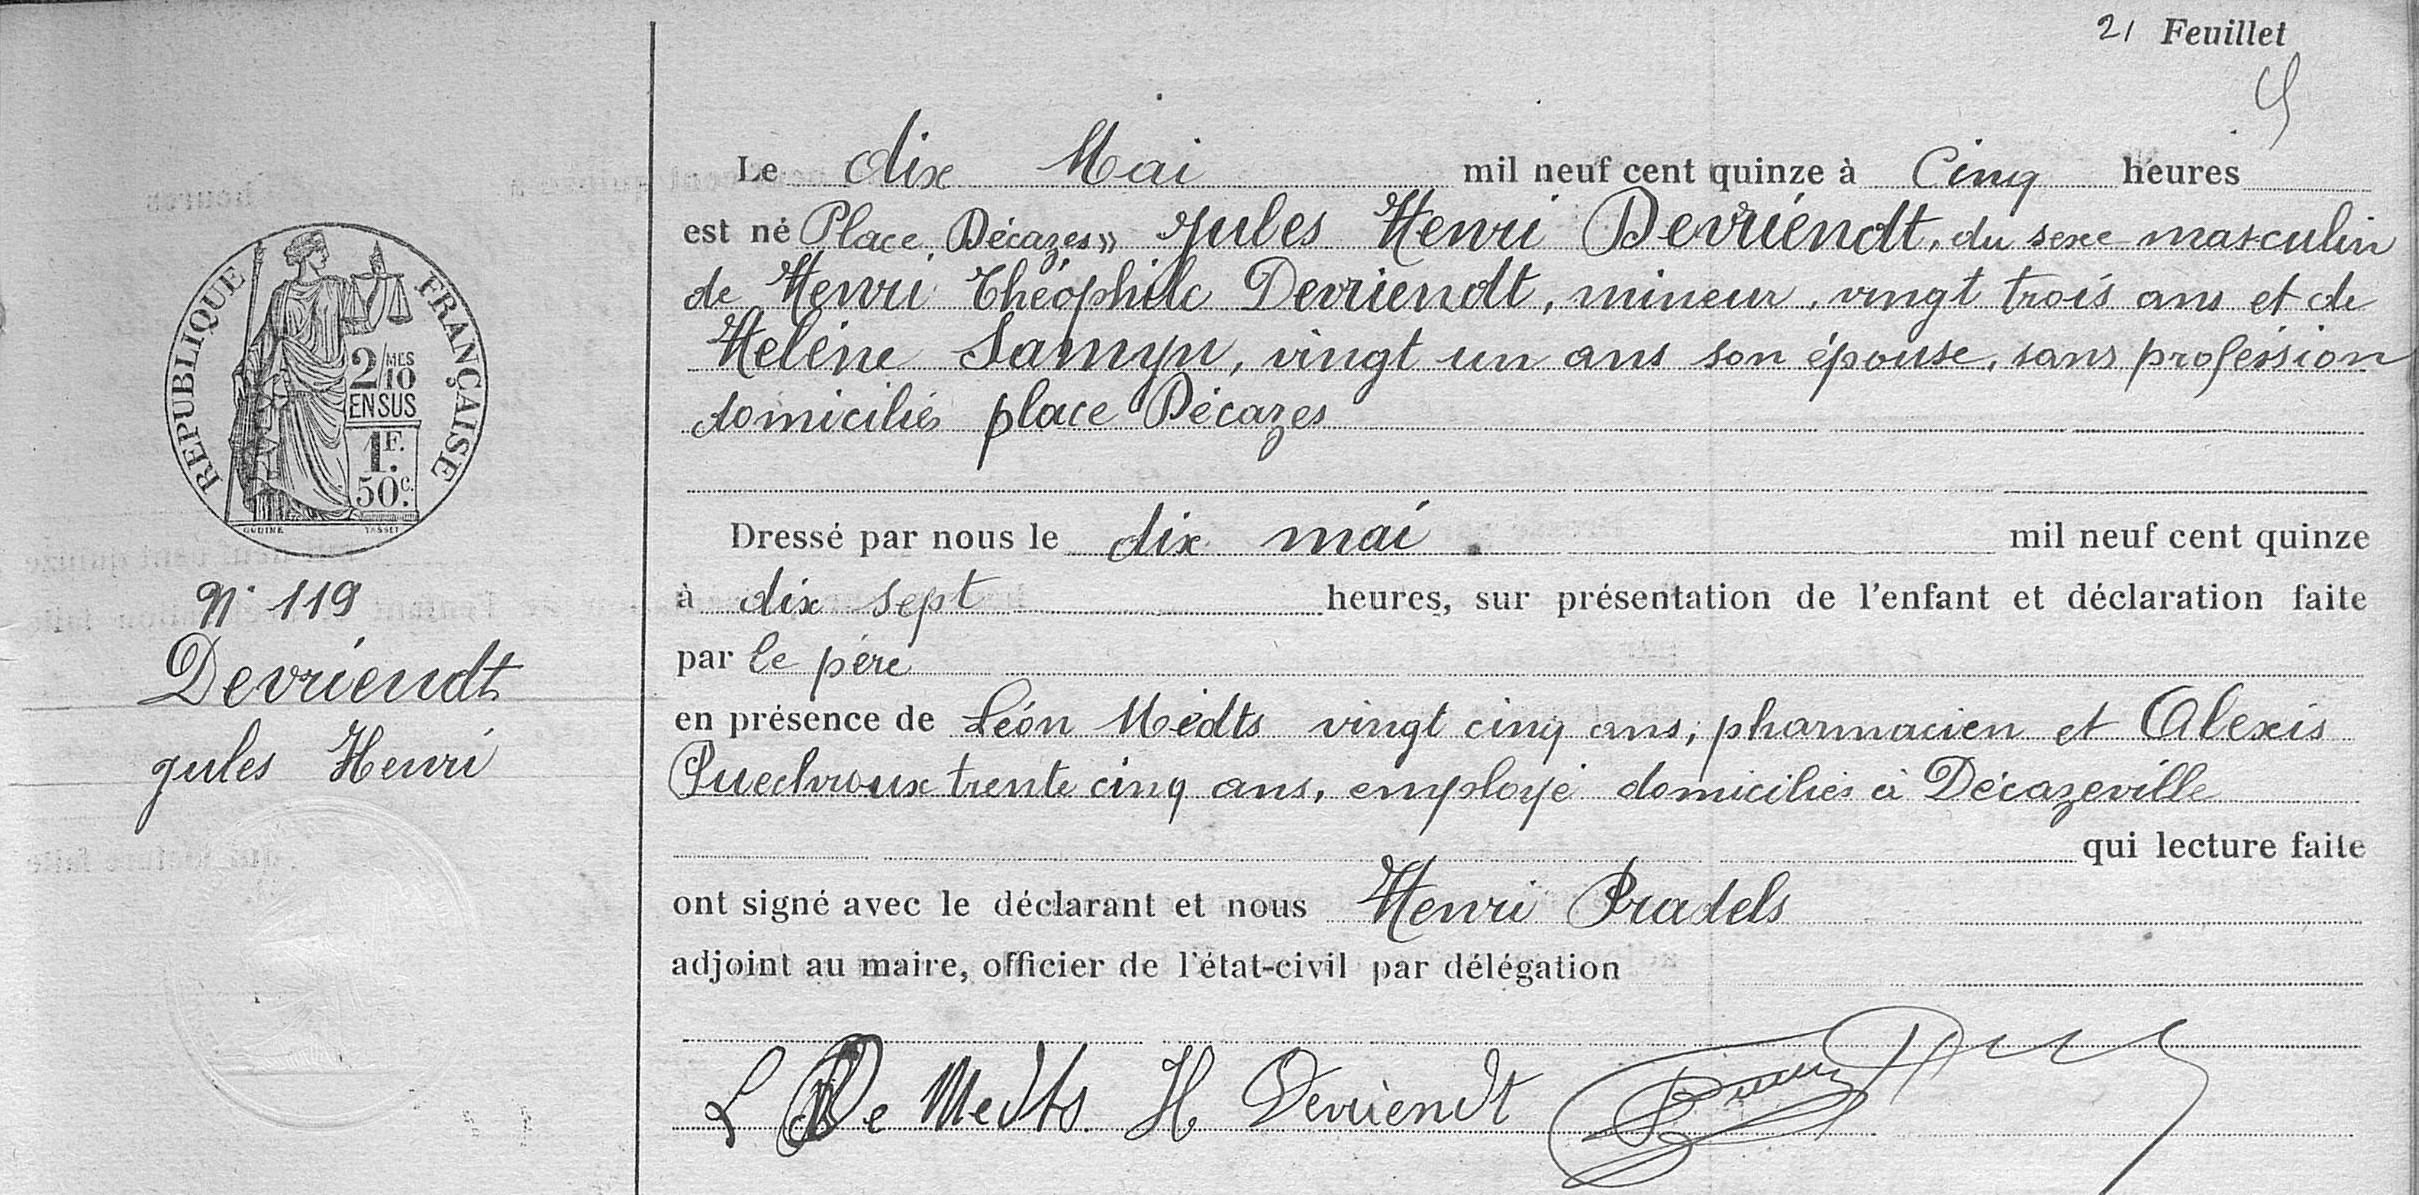 21 Feuillet
Le dix Mai mil neuf cent quinze à Cinq heures
est né Place Décazes» Jules Henri Devriendt, du sexe masculin
de Henri Théophile Devriendt, mineur, vingt trois ans et de
Helène Samyn, vingt un ans son épouse, sans profession
domiciliés place Décazes
Dressé par nous le dix mai mil neuf cent quinze
à dix sept heures, sur présentation de l'enfant et déclaration faite
par le père
en présence de Léon Médts vingt cinq ans, pharmacien et Alexis
Puechroux trente cinq ans, employé domiciliés à Décazeville
qui lecture faite
ont signé avec le déclarant et nous Henri Pradels
adjoint au maire, officier de l'état-civil par délégation
L De Medts H Devriendt
RÉPUBLIQUE FRANÇAISE
2/10 MES
EN SUS
1 F.
50 c.
OUDINÉ TASSET
N° 119
Devriendt
Jules Henri